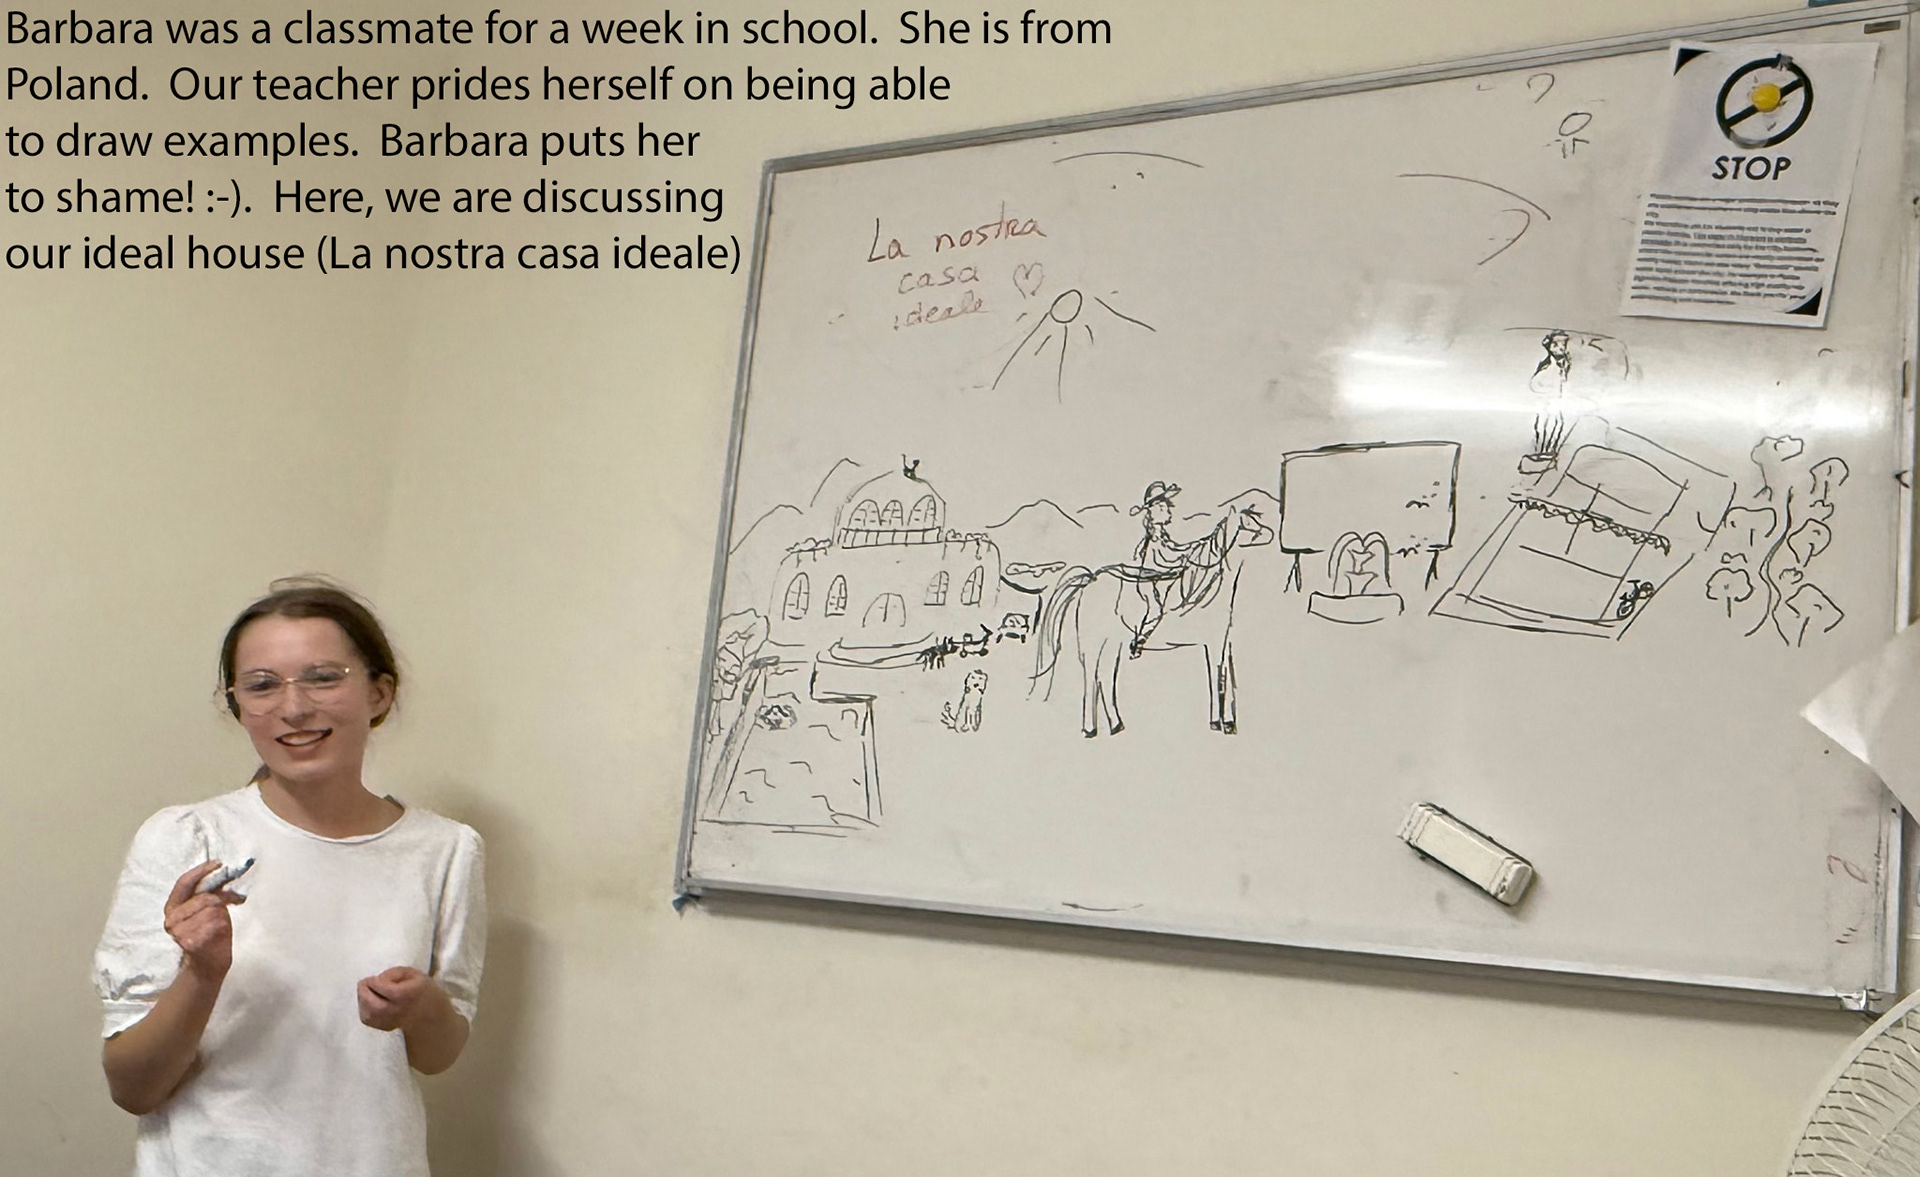 Barbara was a classmate for a week in school.  She is from
Poland.  Our teacher prides herself on being able
to draw examples.  Barbara puts her
to shame! :-).  Here, we are discussing
our ideal house (La nostra casa ideale)
La nostra
casa
ideale
STOP